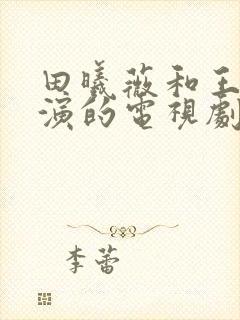 田曦薇和王
演的電視劇
李蕾